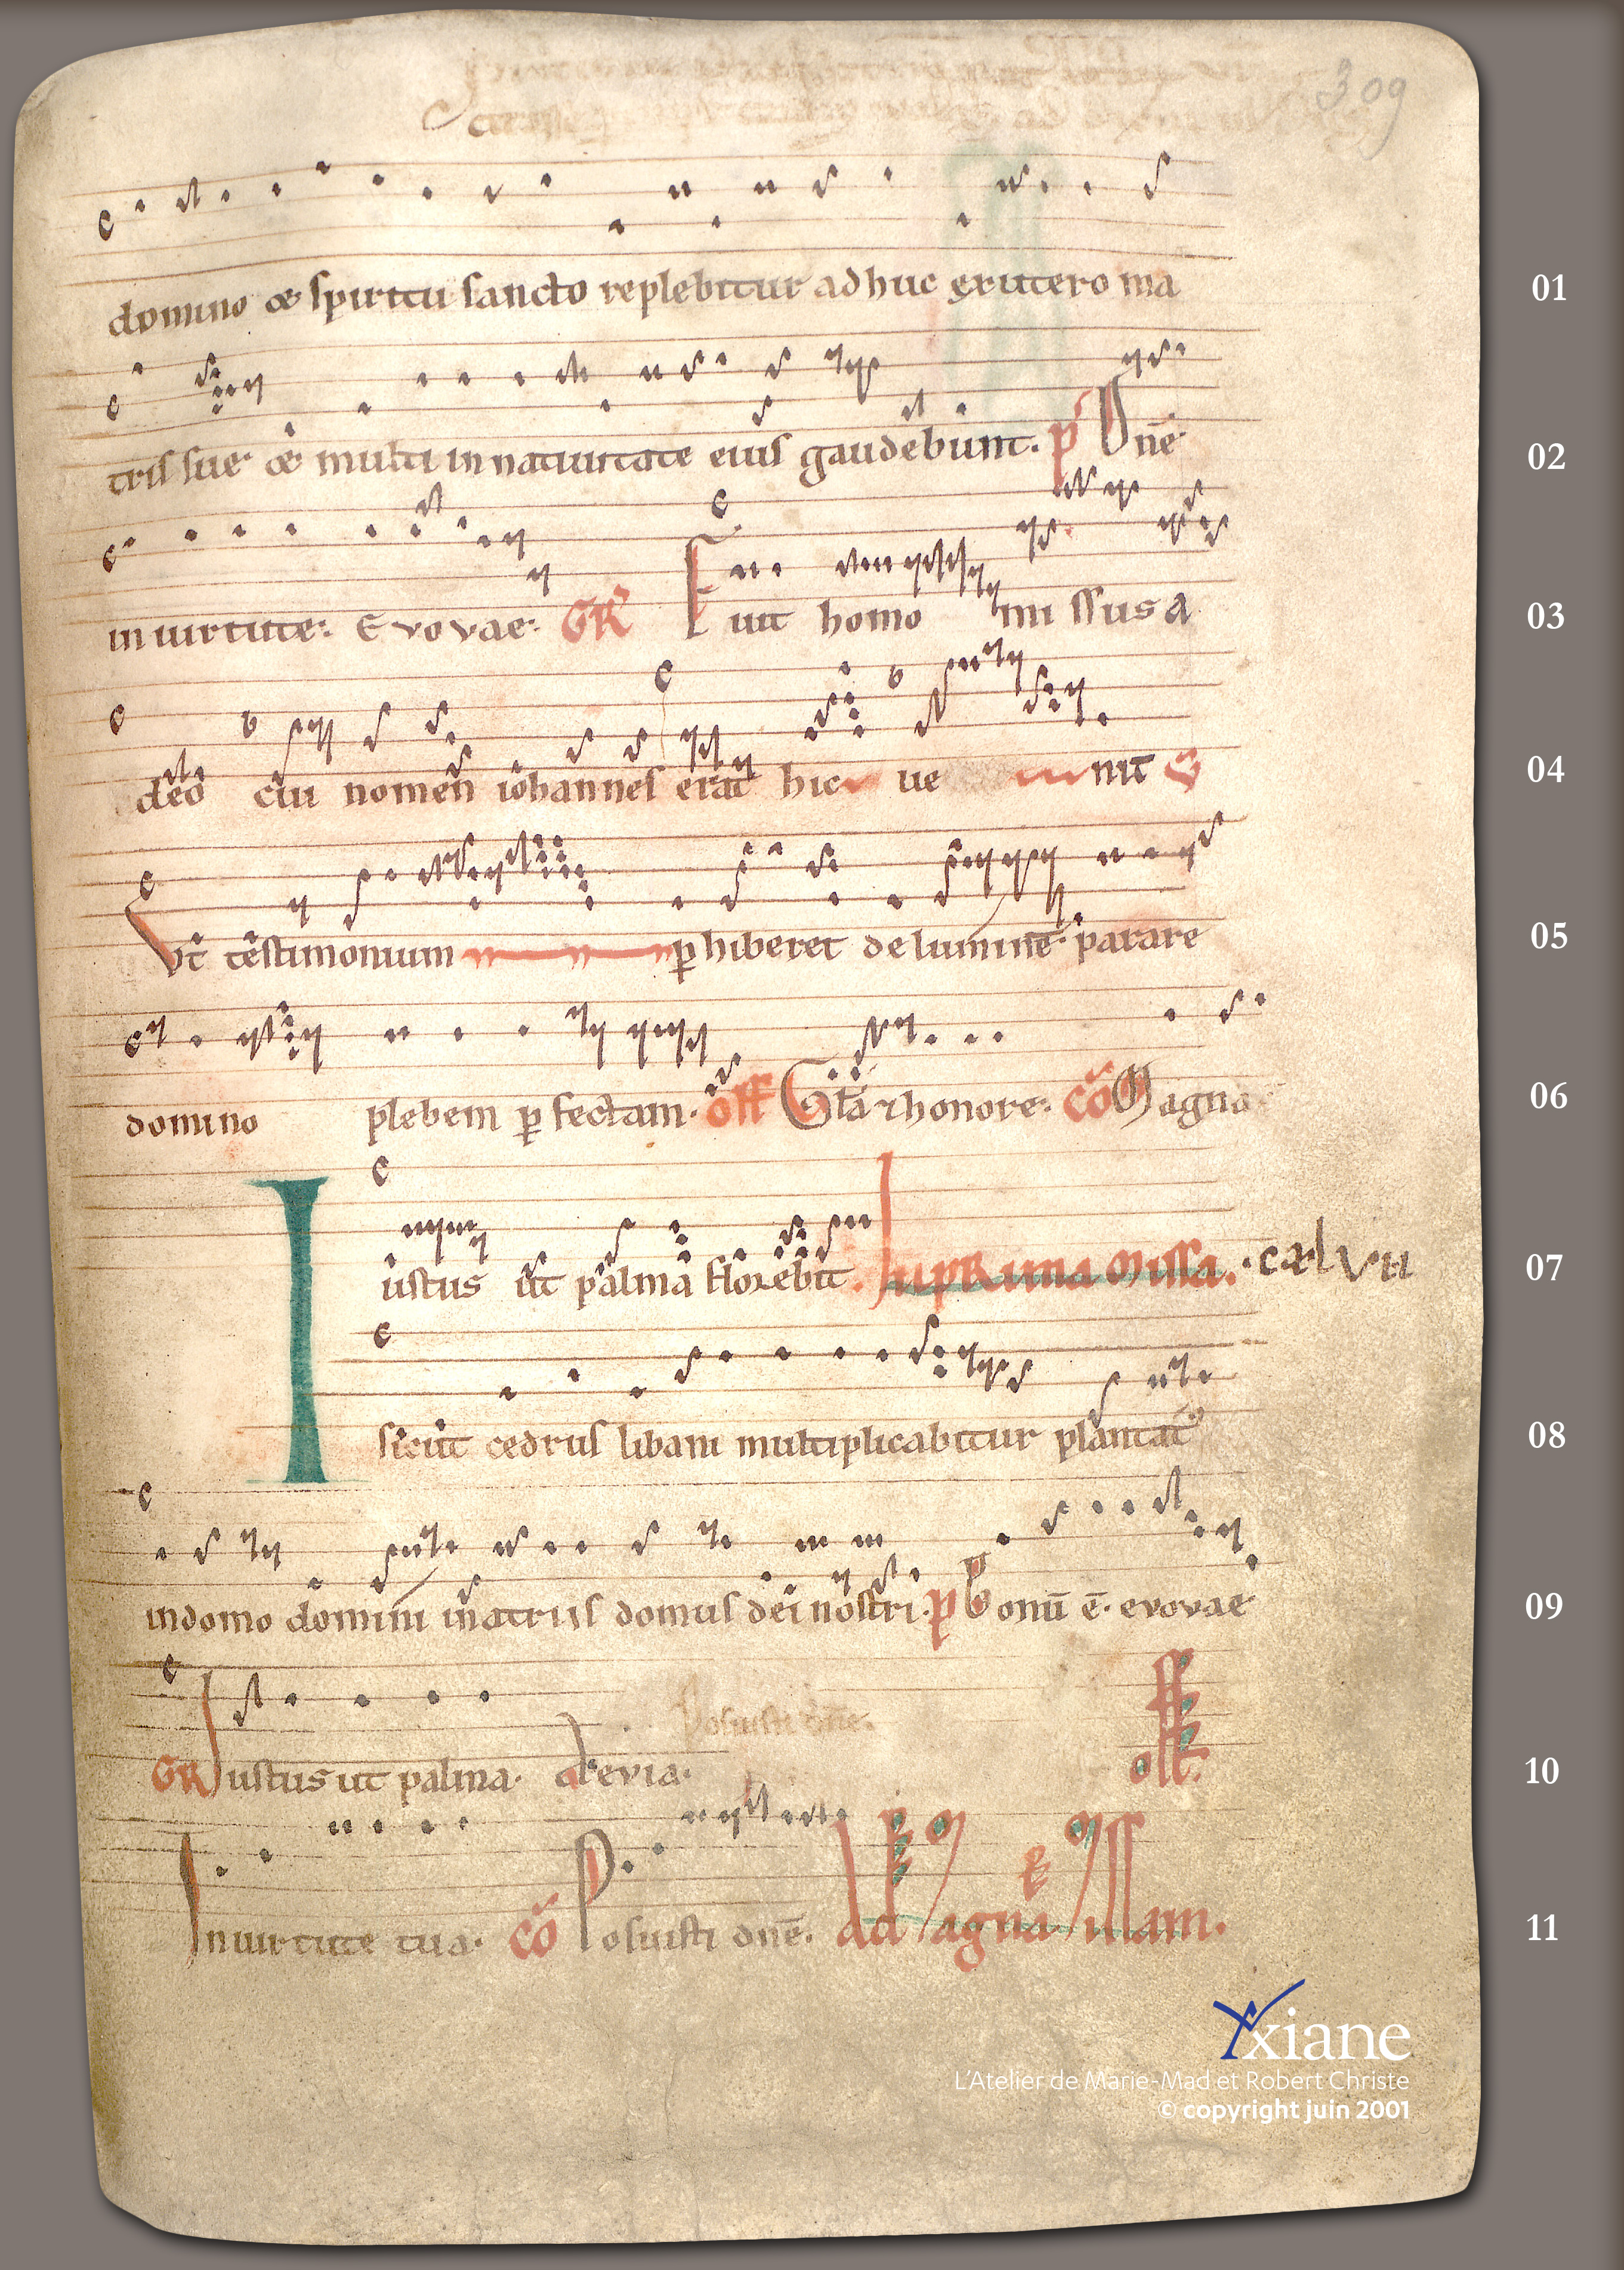 309
domino & spiritu sancto replebitur adhuc ex utero ma
01
tris sue· & multi in natiuitate eius gaudebunt. p̄ Dnē·
02
in uirtute: Evovae: GR Fuit homo missus a
03
deo cui nomen iohannes erat hic ue nit
04
Vt testimonium p hiberet de lumine· parare
05
domino plebem p fectam· off Glā & honore: cō Magna
06
Iustus ut palma florebit. In pRima Missa. ·cælvii
07
sicut cedrus libani multiplicabitur plantat᷒
08
in domo domini in atriis domus dei nostri· p̄ Bonū ē· evovae
09
Posuisti dn̄e.
GR Iustus ut palma· Alevia· off.
10
In uirtute tua· cō Posuisti dnē. ad Magnā Missam.
11
Yxiane
L'Atelier de Marie-Mad et Robert Christe
© copyright juin 2001